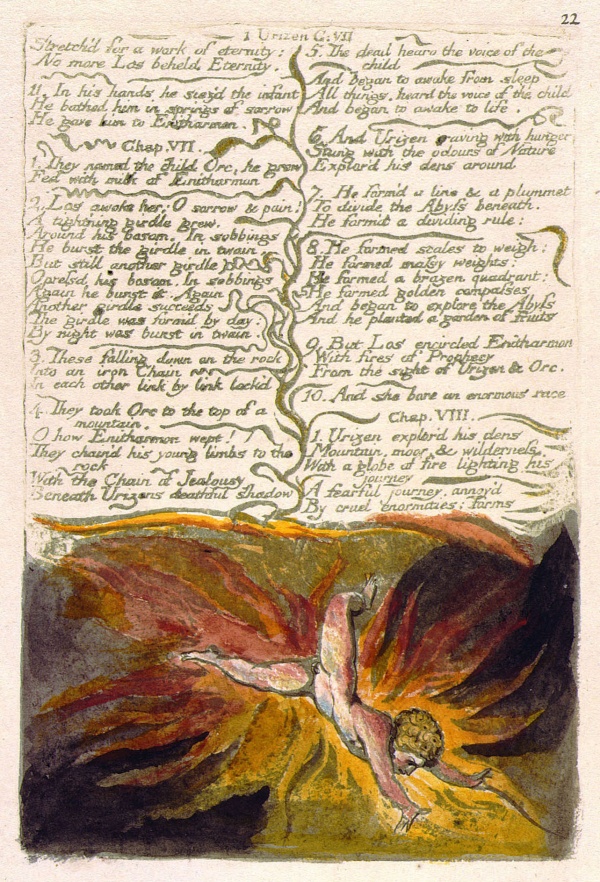 22
I Urizen C: VII
Stretch'd for a work of eternity;
No more Los beheld Eternity.
11. In his hands he siez'd the infant
He bathed him in springs of sorrow
He gave him to Enitharmon.
Chap. VII.
1. They named the child Orc, he grew
Fed with milk of Enitharmon
2. Los awoke her; O sorrow & pain!
A tight'ning girdle grew,
Around his bosom. In sobbings
He burst the girdle in twain,
But still another girdle
Opress'd his bosom, In sobbings
Again he burst it. Again
Another girdle succeeds
The girdle was form'd by day;
By night was burst in twain.
3. These falling down on the rock
Into an iron Chain
In each other link by link lock'd
4. They took Orc to the top of a
mountain.
O how Enitharmon wept!
They chain'd his young limbs to the
rock
With the Chain of Jealousy
Beneath Urizens deathful shadow
5. The dead heard the voice of the
child
And began to awake from sleep
All things. heard the voice of the child
And began to awake to life.
6. And Urizen craving with hunger
Stung with the odours of Nature
Explor'd his dens around
7. He form'd a line & a plummet
To divide the Abyss beneath.
He form'd a dividing rule:
8. He formed scales to weigh;
He formed massy weights;
He formed a brazen quadrant;
He formed golden compasses
And began to explore the Abyss
And he planted a garden of fruits
9. But Los encircled Enitharmon
With fires of Prophecy
From the sight of Urizen & Orc.
10. And she bore an enormous race
Chap. VIII.
1. Urizen explor'd his dens
Mountain, moor, & wilderness,
With a globe of fire lighting his
journey
A fearful journey, annoy'd
By cruel enormities: forms